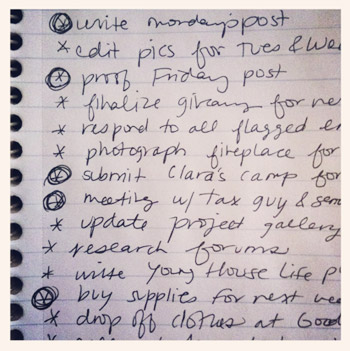 * write monday's post
* edit pics for Tues & Wed
* proof Friday post
* finalize giveaway for ne
* respond to all flagged e
* photograph fireplace for
* submit Clara's camp for
* meeting w/ tax guy & sen
* update project gallery
* research forums
* write Young House Life p
* buy supplies for next wee
* drop off clothes at Good